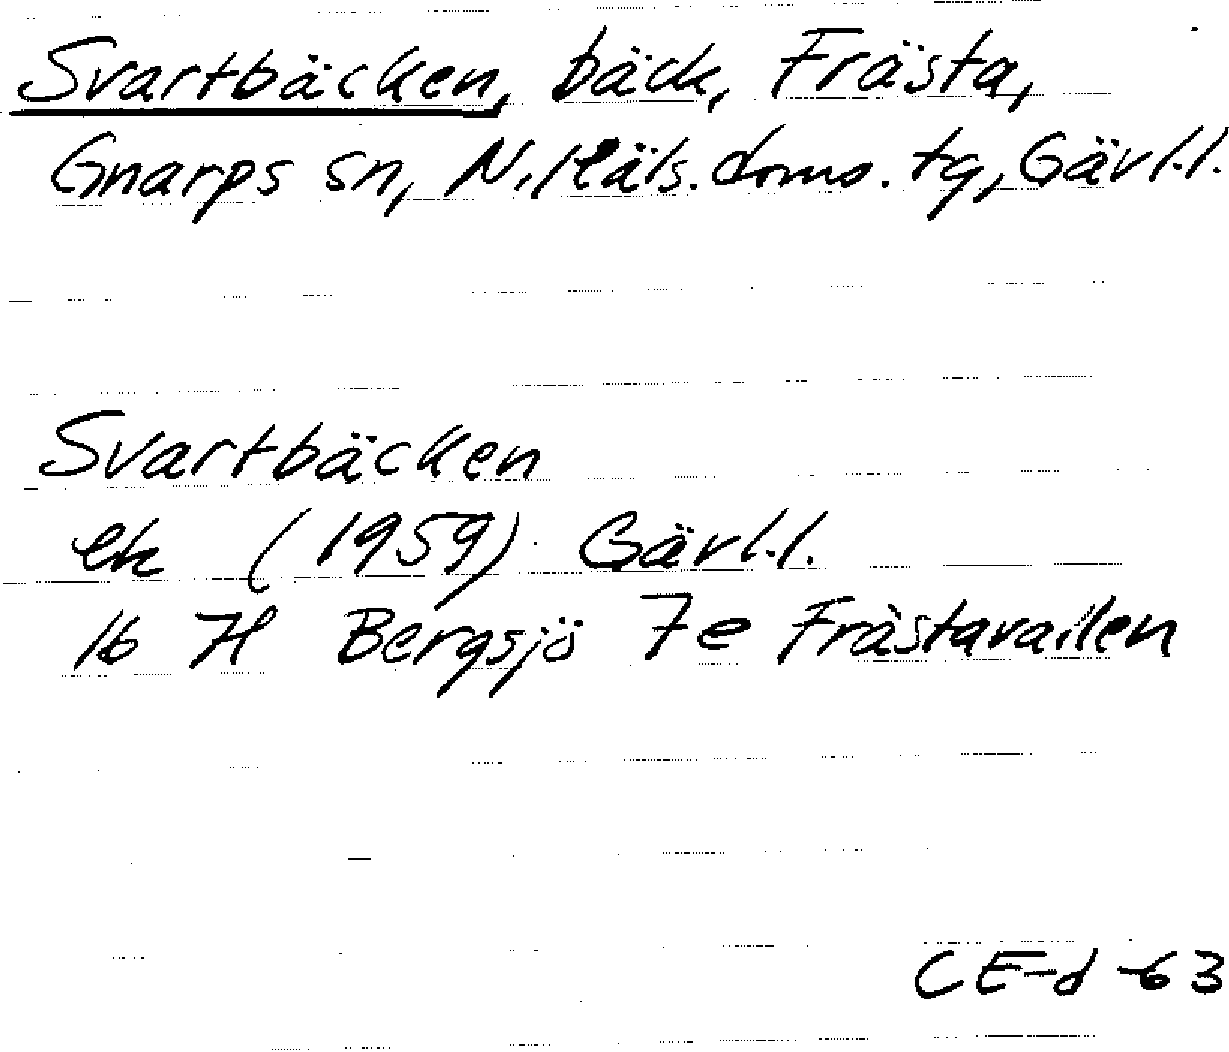 Svartbäcken, bäck, Frästa,
Gnarps sn, N. Häls. doms. tg, Gävl.l.
Svartbäcken
ek (1959) Gävl.l.
16 H Bergsjö 7e Frästavallen
CE-d -63